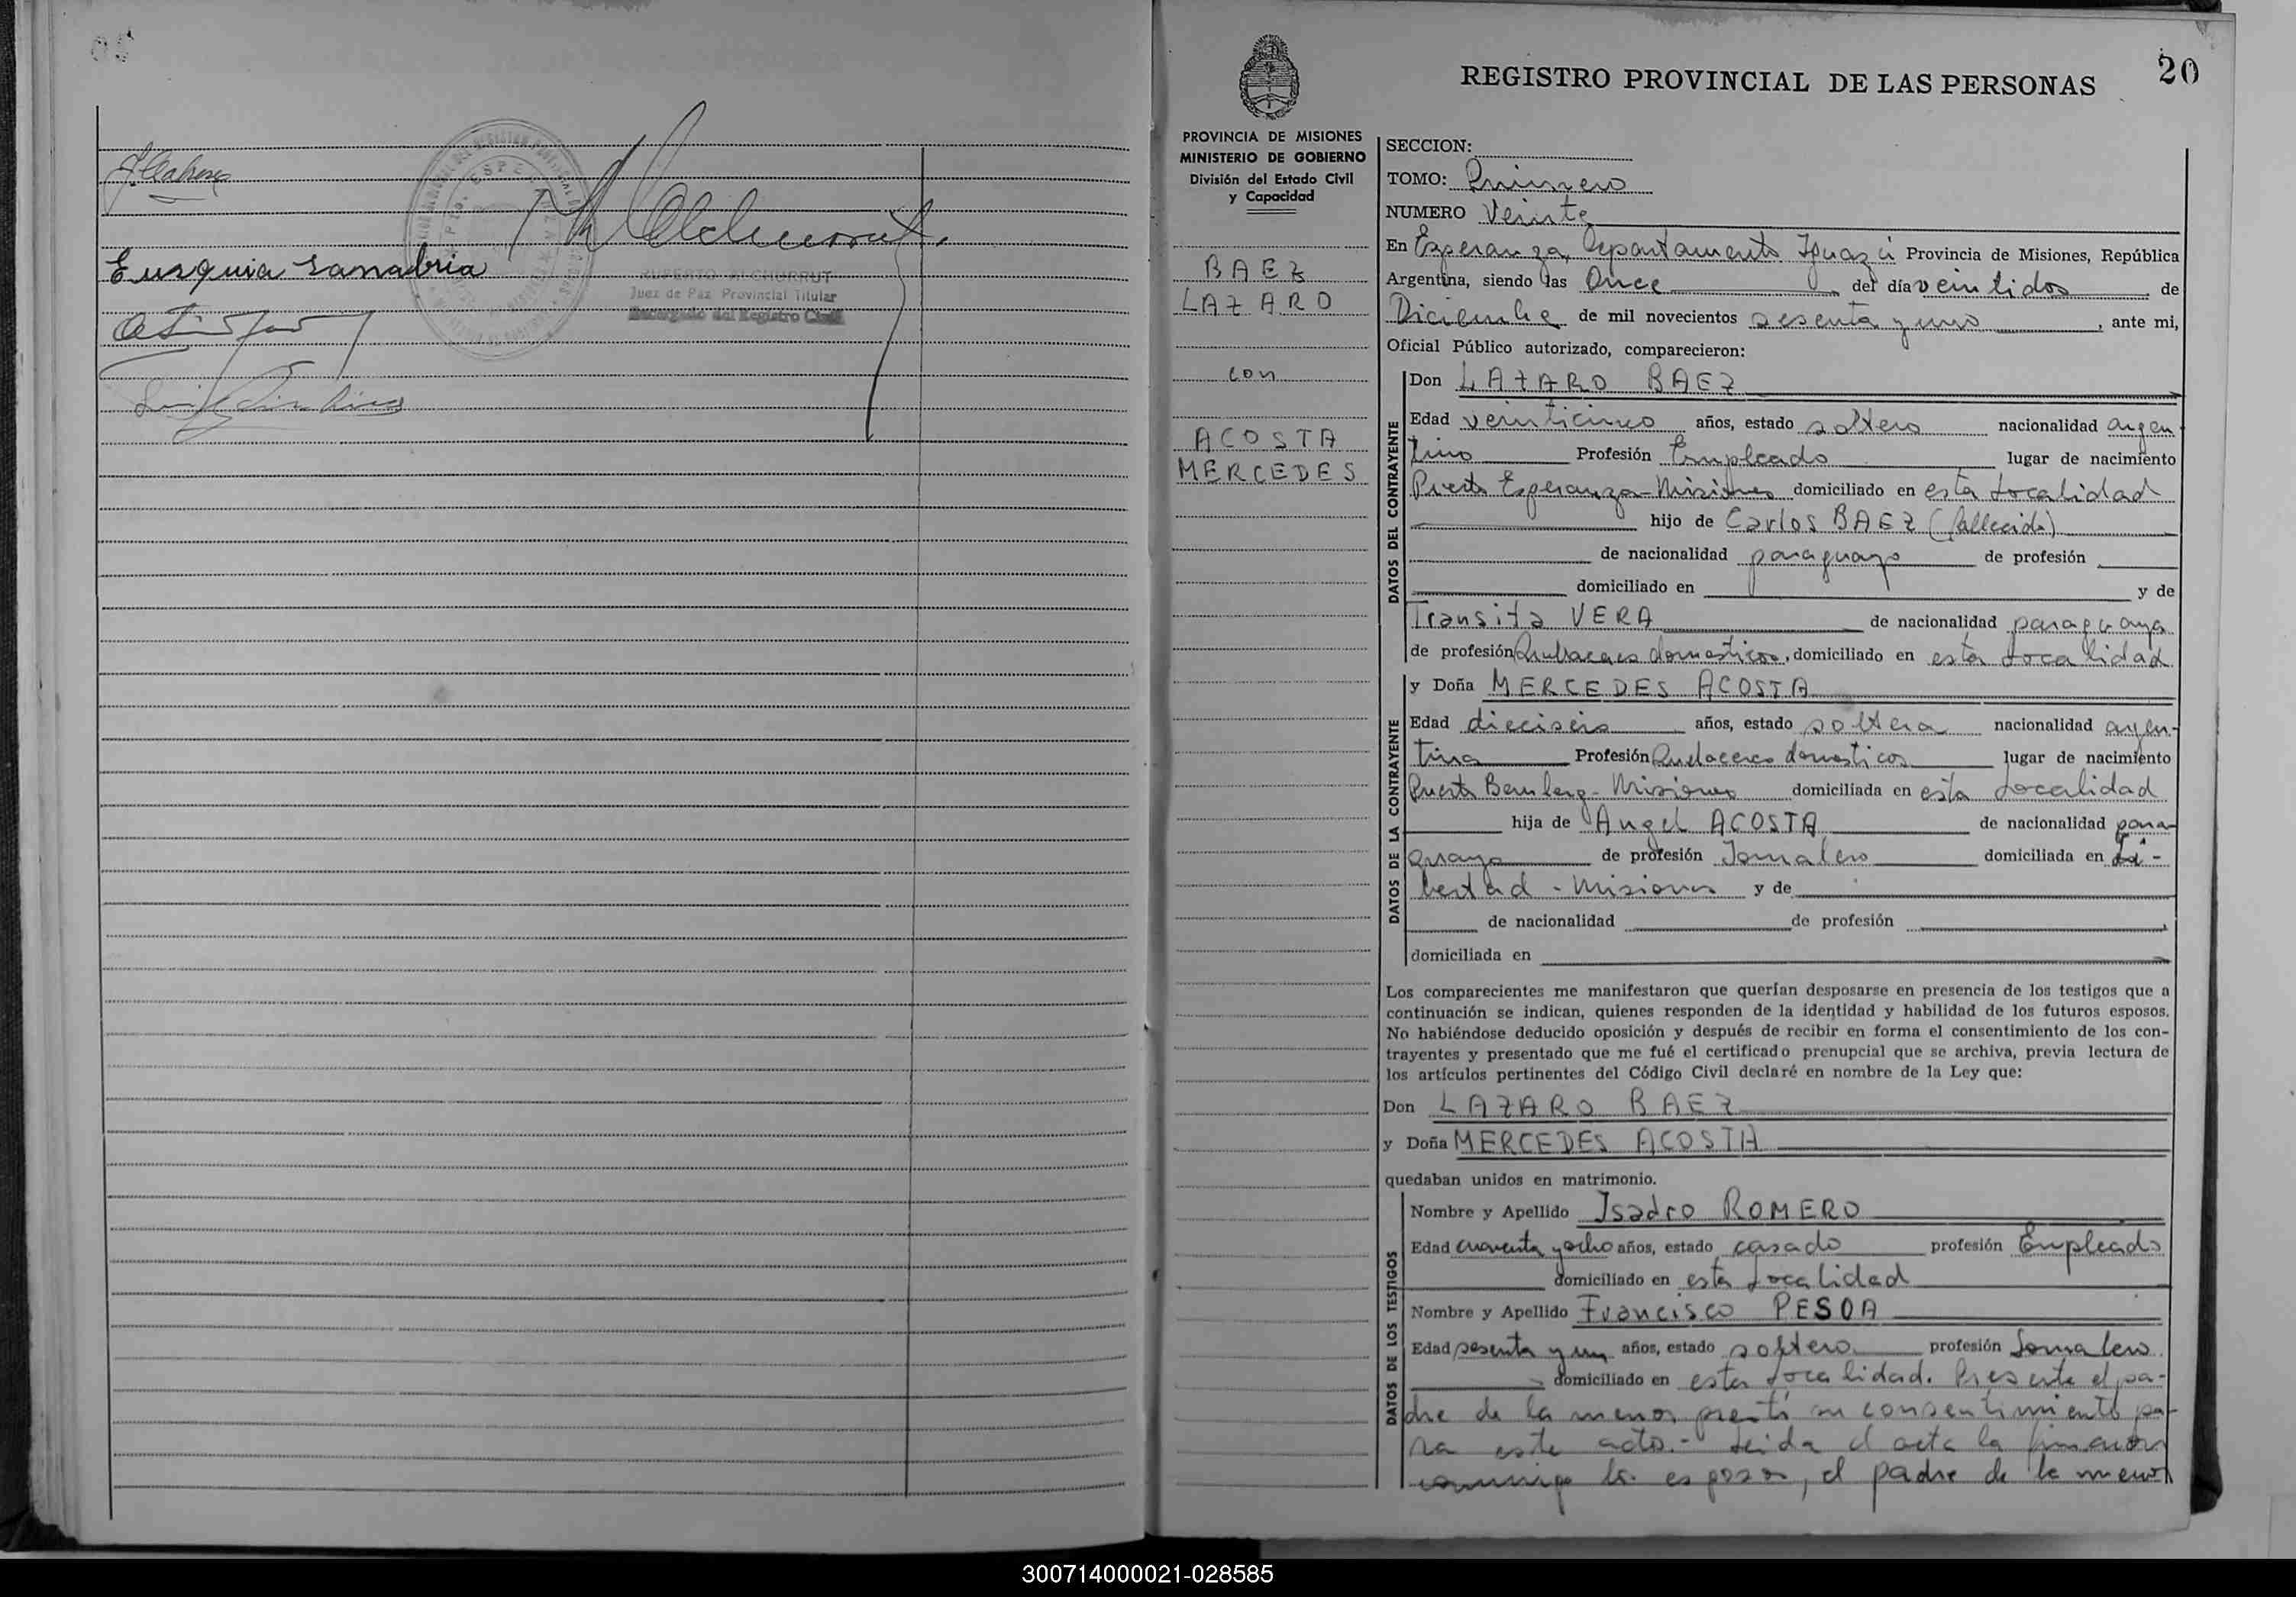 Eusquia Sanabria
RUPERTO ALCHURRUT
Juez de Paz Provincial Titular
Encargado del Registro Civil
20
REGISTRO PROVINCIAL DE LAS PERSONAS
PROVINCIA DE MISIONES
MINISTERIO DE GOBIERNO
División del Estado Civil
y Capacidad
BAEZ
LAZARO
con
ACOSTA
MERCEDES
SECCION:
TOMO: Primero
NUMERO Veinte
En Esperanza Departamento Iguazú Provincia de Misiones, República
Argentina, siendo las Once del día veintidos de
Diciembre de mil novecientos sesenta y uno, ante mi,
Oficial Público autorizado, comparecieron:
DATOS DEL CONTRAYENTE
Don LAZARO BAEZ
Edad veinticinco años, estado soltero nacionalidad argen
tino Profesión Empleado lugar de nacimiento
Puerto Esperanza-Misiones domiciliado en esta Localidad
hijo de Carlos BAEZ (fallecido)
de nacionalidad paraguayo de profesión
domiciliado en y de
Transita VERA de nacionalidad paraguaya
de profesión Quehaceres domesticos, domiciliado en esta Localidad
DATOS DE LA CONTRAYENTE
y Doña MERCEDES ACOSTA
Edad dieciseis años, estado soltera nacionalidad argen-
tina Profesión Quehaceres domesticos lugar de nacimiento
Puerto Bemberg - Misiones domiciliada en esta Localidad
hija de Angel ACOSTA de nacionalidad para-
guayo de profesión Jornalero domiciliada en Li-
bertad - Misiones y de
de nacionalidad de profesión
domiciliada en
Los comparecientes me manifestaron que querían desposarse en presencia de los testigos que a
continuación se indican, quienes responden de la identidad y habilidad de los futuros esposos.
No habiéndose deducido oposición y después de recibir en forma el consentimiento de los con-
trayentes y presentado que me fué el certificado prenupcial que se archiva, previa lectura de
los artículos pertinentes del Código Civil declaré en nombre de la Ley que:
Don LAZARO BAEZ
y Doña MERCEDES ACOSTA
quedaban unidos en matrimonio.
DATOS DE LOS TESTIGOS
Nombre y Apellido Isadro ROMERO
Edad cuarenta y ocho años, estado casado profesión Empleado
domiciliado en esta Localidad
Nombre y Apellido Francisco PESOA
Edad sesenta y un años, estado soltero profesión Jornalero
domiciliado en esta Localidad. Presente el pa-
dre de la menor prestó su consentimiento pa-
ra este acto.- Leida el acta la firmaron
conmigo los esposos, el padre de la menor
300714000021-028585